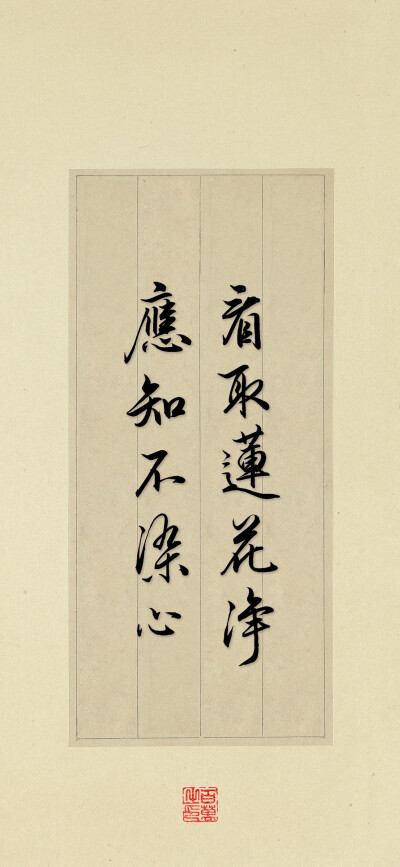 看取蓮花淨
應知不染心
百萬